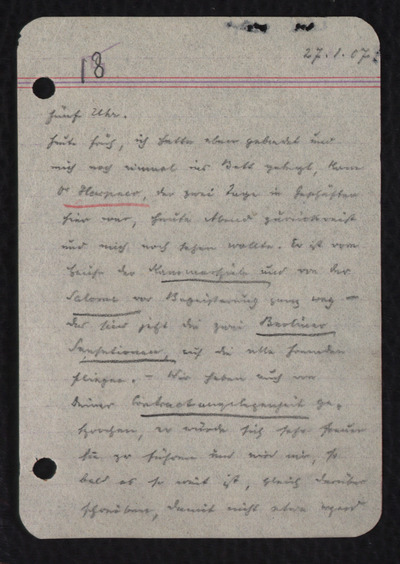 18
27.1.07.
Fünf Uhr.
Heute früh, ich hatte eben gebadet und
mich noch einmal ins Bett gelegt, kam
Dr, der zwei Tage in Geschäften
hier war, heute Abend zurückreist
und mich noch sehen wollte. Er ist vom
der Kammerspiele und von der
Salome vor Begeisterung ganz weg –
das sind jetzt die zwei Berliner
Sensationen, auf die alle Fremden
fliegen. – Wir haben auch von
Deiner Contractangelegenheit ge-
sprochen, er würde sich sehr freuen
sie zu führen und wird mir, so-
bald es so weit ist, gleich darüber
schreiben, damit nicht etwa